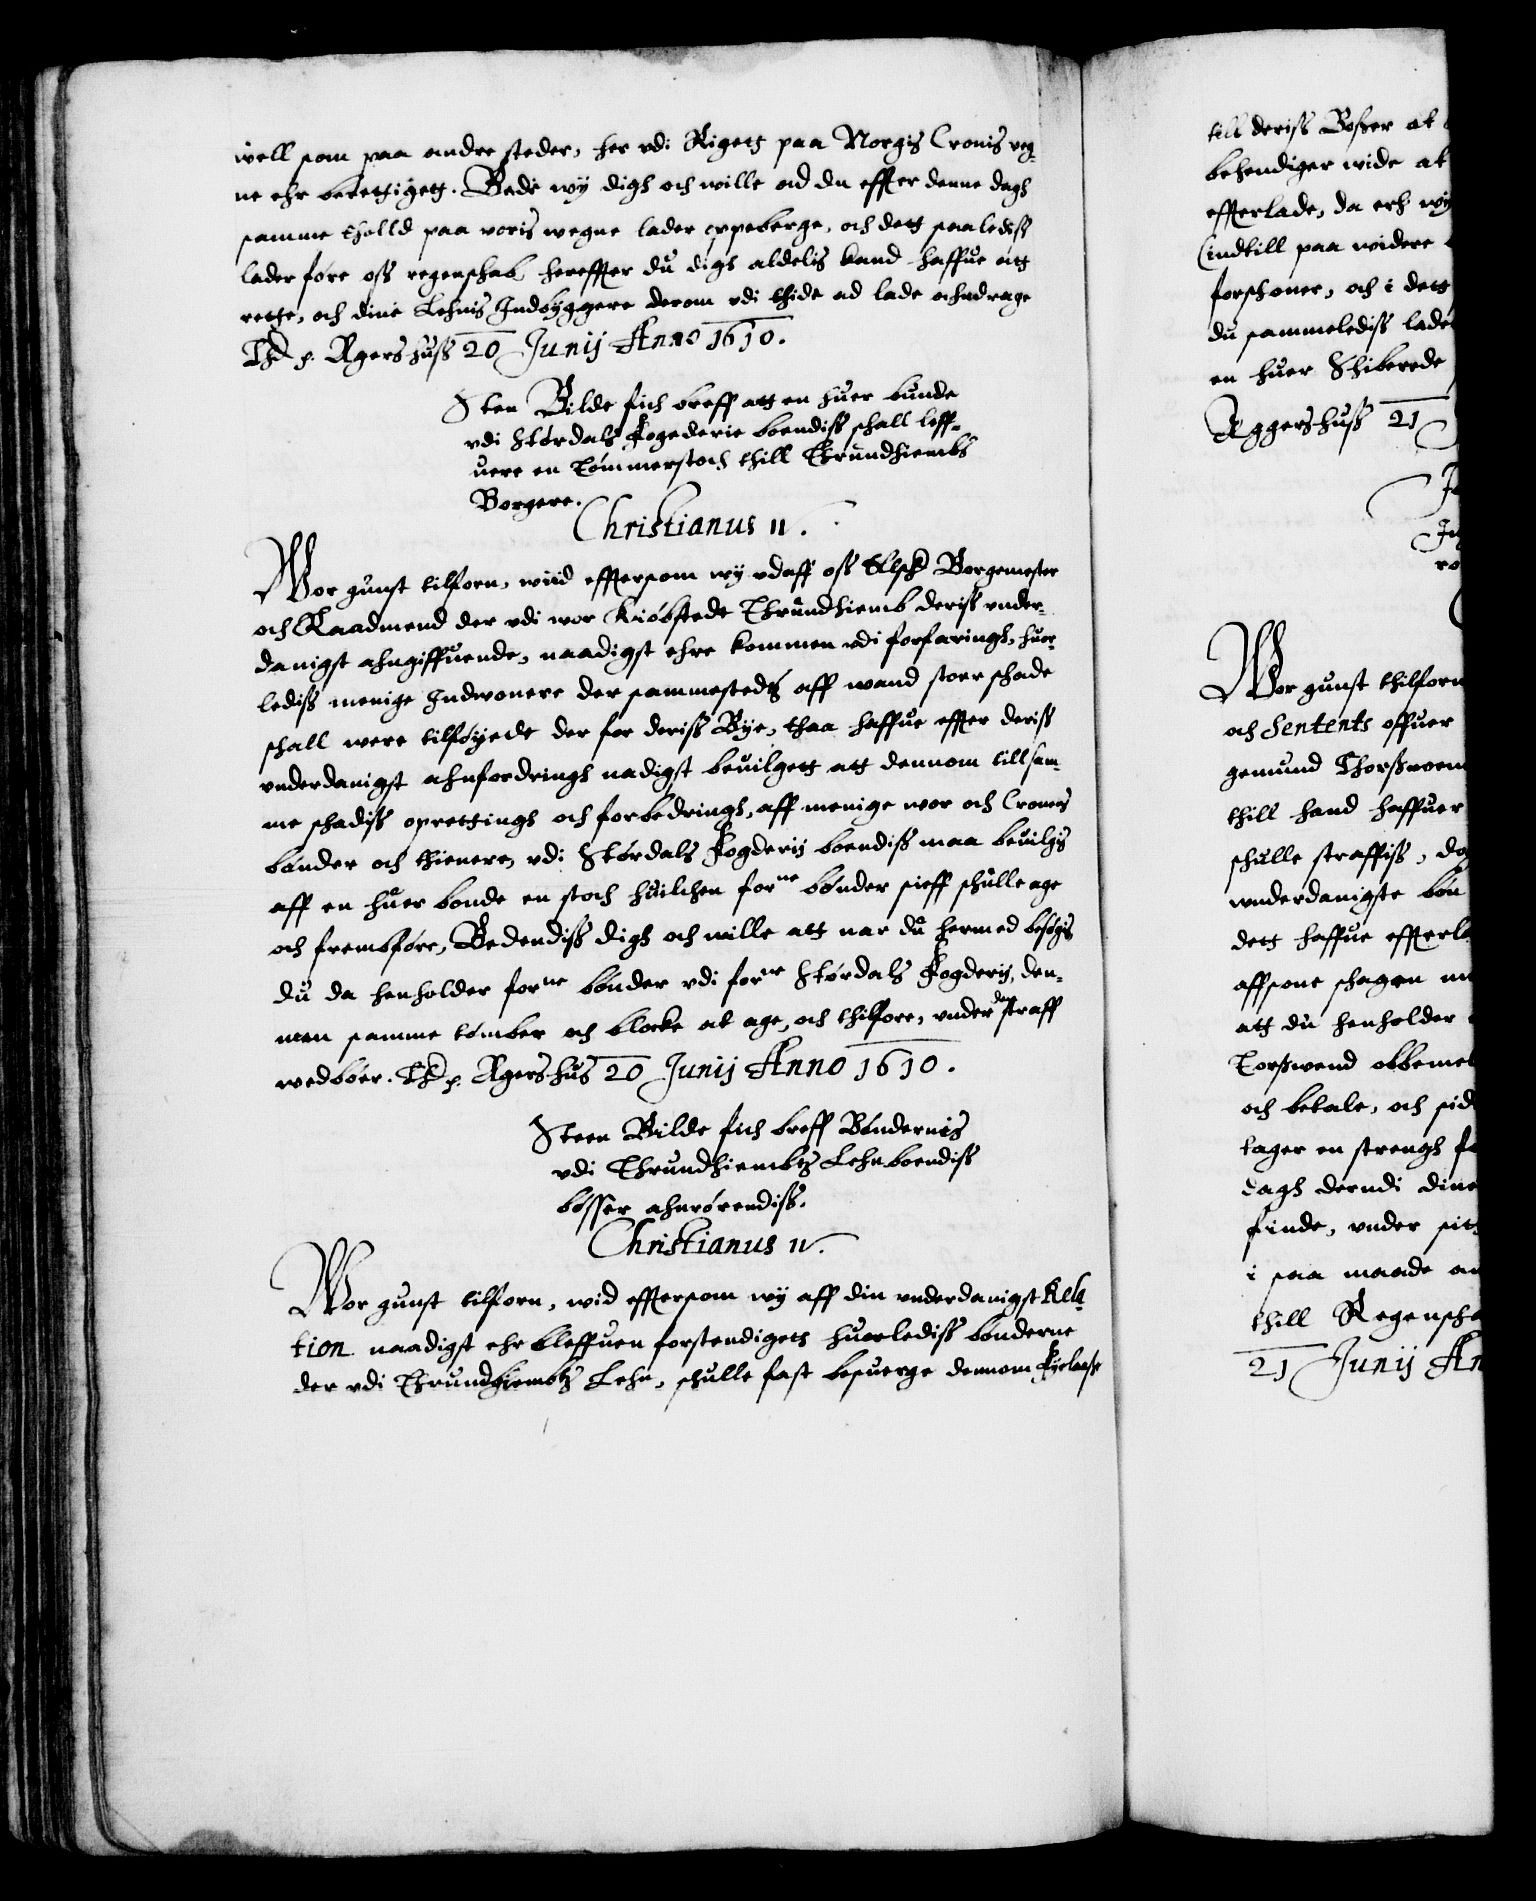 well som paa andre steder, her vdi Rigett paa Norgis Cronis veg-
ne ehr berettigett. Bede wy digh och wille ad du effter denne dagh
samme tholld paa voris wegne lader oppeberge, och dett saaledisß
lader føre osß regenschab hereffter du digh aldelis kand haffue att
rette, och dine Lehnis Indbyggere derom vdi thide ad lade
Agershusß 20 Junij Anno 1610.
Sten Bilde fich breff att en huer bunde
vdi Størdals Fogederie boendisß schall leff-
uere en Tømmerstoch thill Thrundhiembs
Borgere.
Christianus 4.
Wor gunst tilforn, wiid efftersom wy vdaff osß Elsch Borgemester
och Raadmend der vdi wor Kiøbstedt Thrundhiemb derisß vnder-
danigst ahngiffuende, naadigst ehre kommen vdi forfaringh, huor-
ledisß menige Indwonere der sammestedtz aff wand stoer schade
schall were tilføyede der for derisß Bye, thaa haffue effter derisß
vnderdanigst ahnfordringh nadigst beuilgett att dennom till sam-
me schadisß oprettingh och forbedringh, aff menige wor och Cronens
bønder och thienere, vdi Størdals Fogderij boendisß maa beuilgis
aff en huer bonde en stoch huilchen forne bønder sielff schulle age
och frembføre, Bedendisß digh och wille att nar du hermed besøgis
du da henholder forne bønder vdi forne Størdals Fogderij, den-
nom samme tømber och blocke at age, och thilføre, vnder den straff
wedbøer. Agershus 20 Junij Anno 1610.
Steen Bilde fich breff Bøndernis
vdi Thrundhiembtz Lehn boendisß
bøsser ahnrørendisß.
Christianus 4.
Wor gunst tilforn, wid efftersom wy aff din vnderdanigst Rela-
tion naadigst ehr bleffuen forstendigett huorledisß bønderne
der vdi Thrundhiembtz Lehn, schulle fast besuerge dennom
till derisß Bøsser at
behendiger wide at
effterlade, da erh wy
indtill paa widere
forschoner, och i dett
du sammeledisß lade
en huer Schiberede
Aggershusß 21
Wor gunst thilforn
och Sentents offuer
gemund
thill hand haffuer
schulle straffisß, do
wnderdanigste bøn
dett haffue effterl
affsone schagen
att du henholder
och betale, och sid
tager en strengh
dagh derudi dine
finde, vnder sit
i saa maade an
thill Regensch
21 Junij An